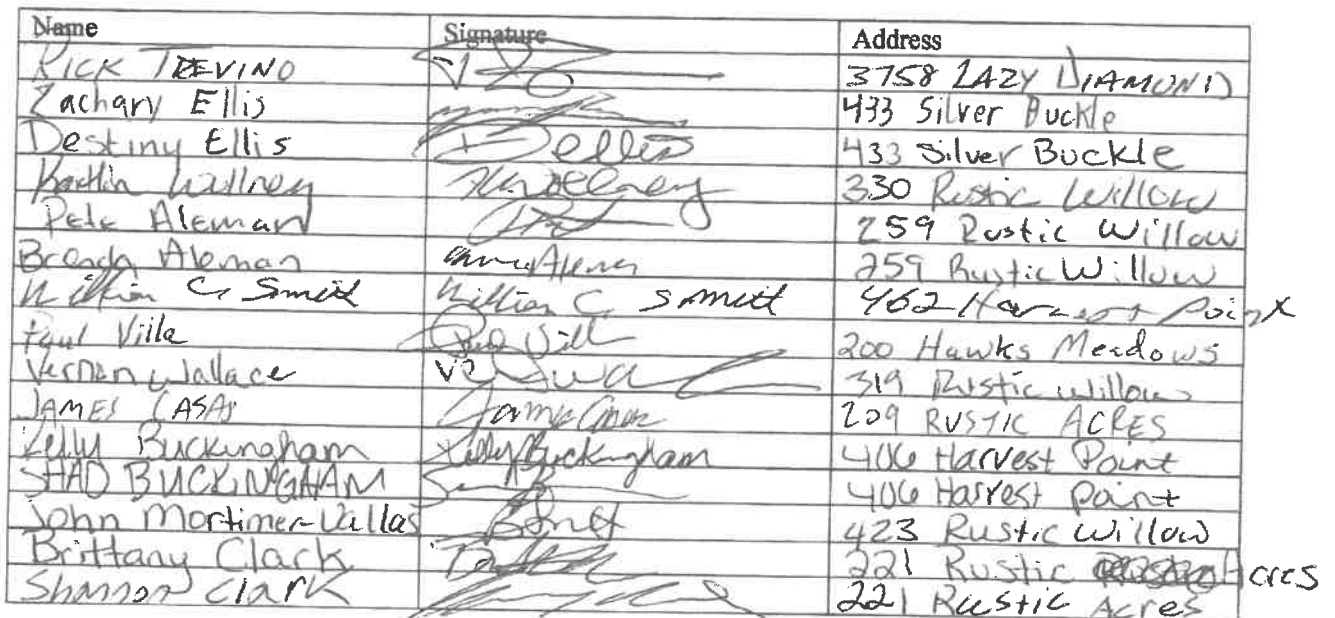 Name Signature Address
RICK TREVINO 3758 LAZY DIAMOND
Zachary Ellis 433 Silver Buckle
Destiny Ellis DEllis 433 Silver Buckle
Kaitlin 330 Rustic Willow
Pete Aleman 259 Rustic Willow
Brenda Aleman Aleman 259 Rustic Willow
William C Smith William C Smith 462 Harvest Point
Paul Villa Paul Vill 200 Hawks Meadows
Vernon Wallace 319 Rustic Willow
JAMES CASAS 209 RUSTIC ACRES
Kelly Buckingham Kelly Buckingham 406 Harvest Point
SHAD BUCKINGHAM 406 Harvest Point
John Mortimer-Vallas 423 Rustic Willow
Brittany Clark 221 Rustic Acres
Shannon Clark 221 Rustic Acres